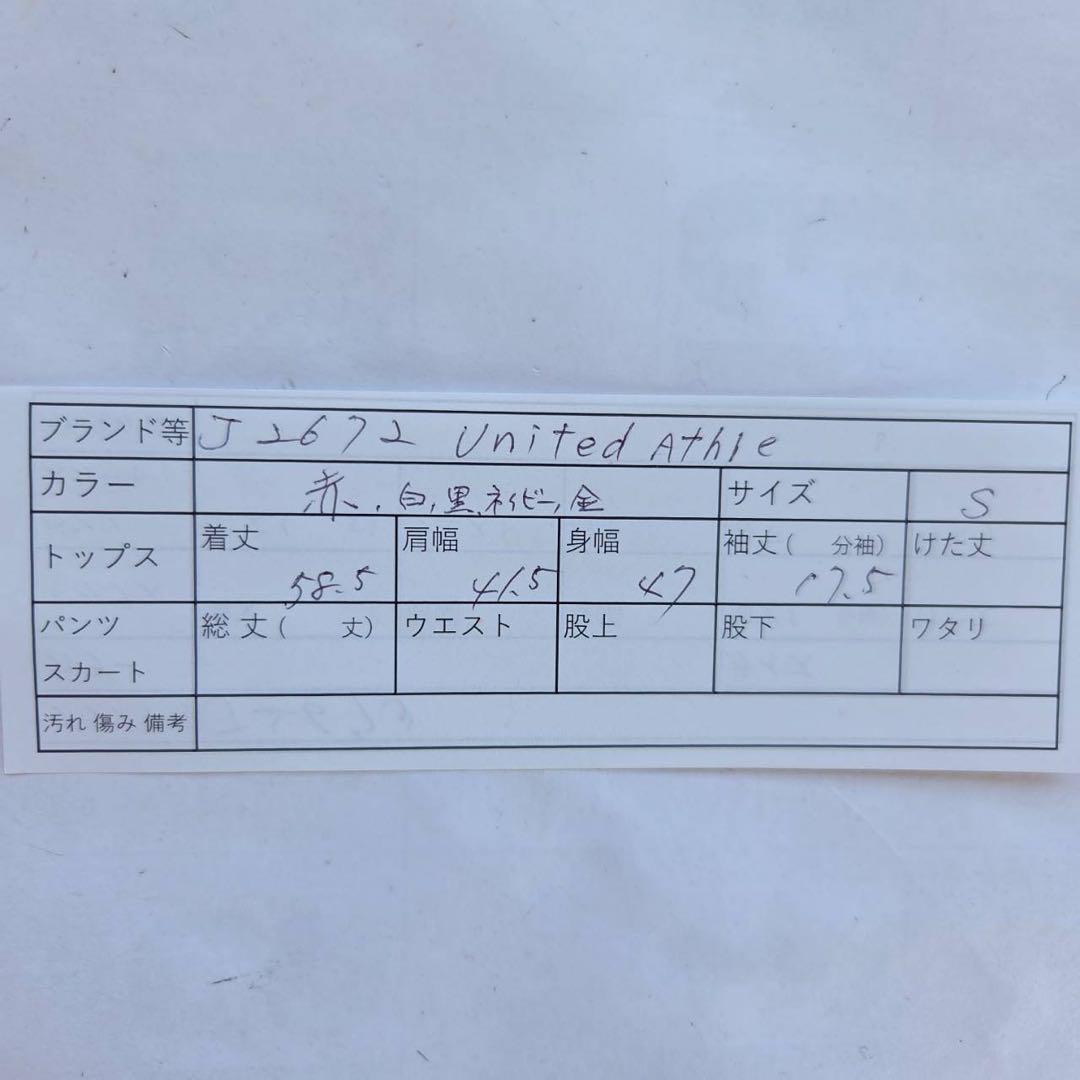 ブランド等 J2672 United Athle
カラー 赤、白、黒、ネイビー、金 サイズ S
トップス 着丈 58.5 肩幅 41.5 身幅 47 袖丈( 分袖) 17.5 けた丈
パンツ スカート 総丈( 丈) ウエスト 股上 股下 ワタリ
汚れ 傷み 備考